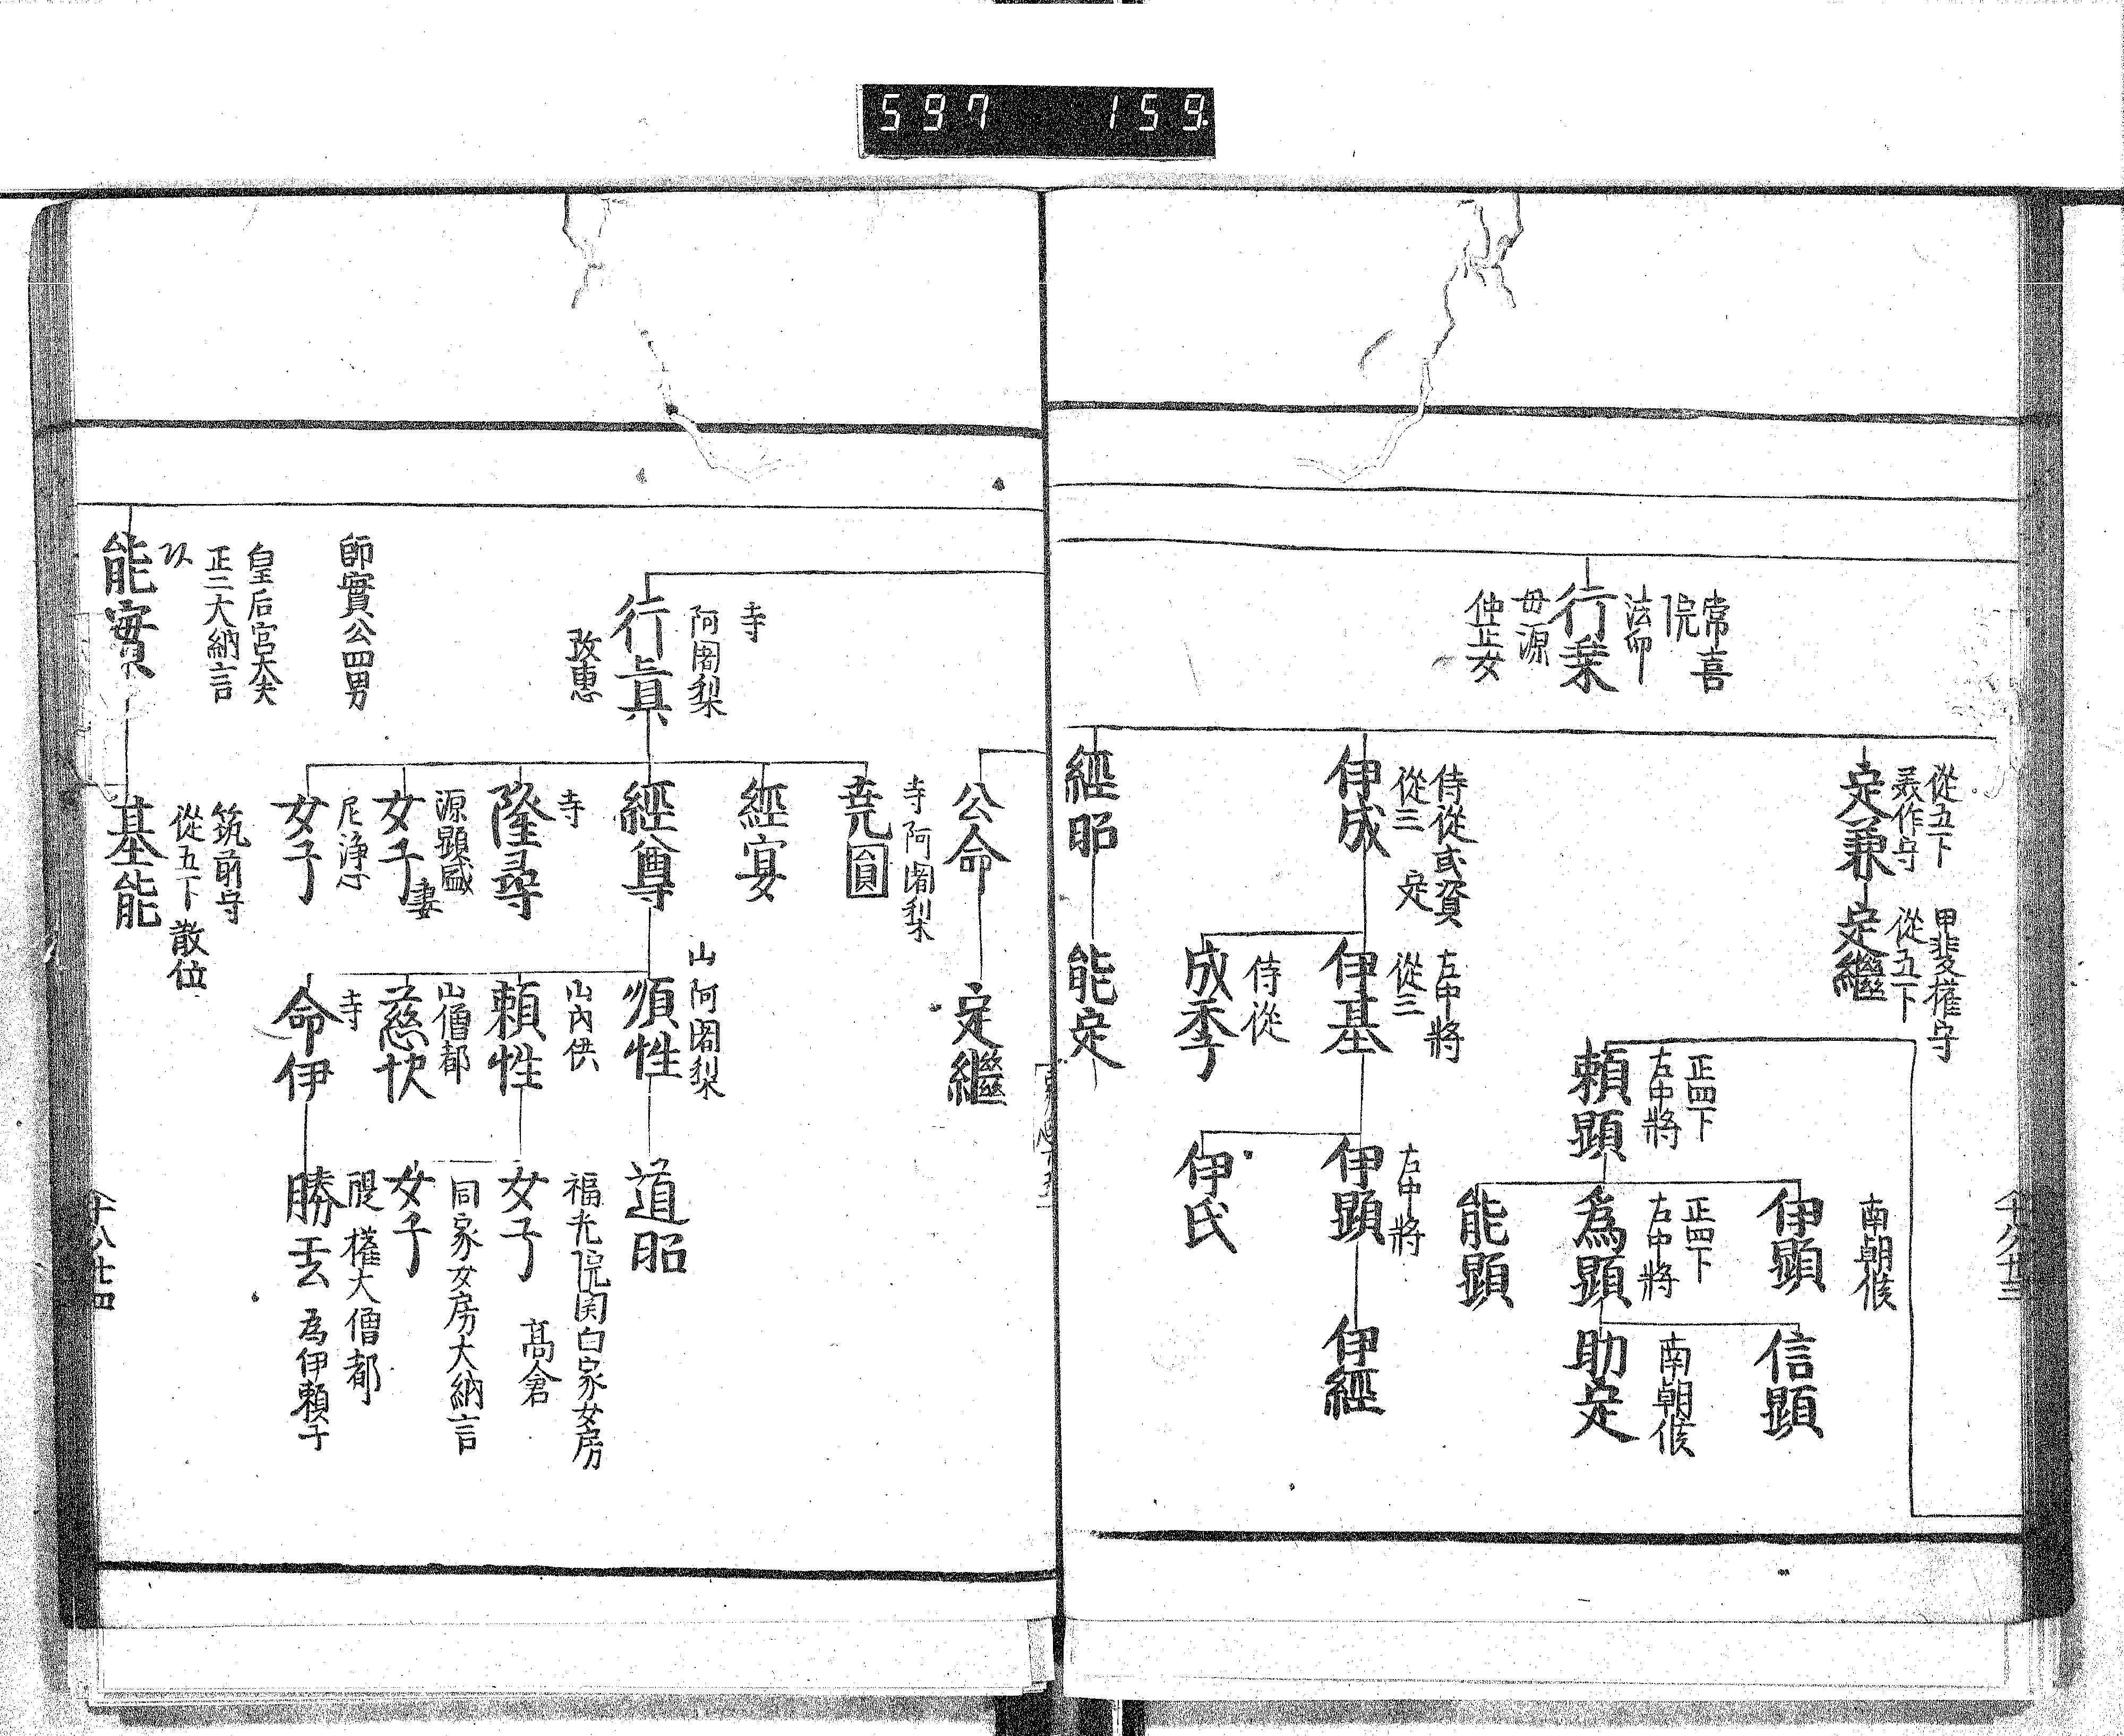 597 159
常喜
院
法印
行乗
母源
仲正女
從五下
美作守
定兼
甲斐權守
從五下
定繼
侍從或資
從三 定
伊成
左中將
從三
伊基
侍從
成季
左中將
伊顕
伊氏
伊經
正四下
左中將
頼顕
南朝候
伊顕
正四下
左中將
為顕
能顕
信顕
南朝候
助定
經昭
能定
公命
定繼
寺
阿闍梨
行眞
改恵
寺阿闍梨
尭圓
經宴
經尊
寺
隆尋
源顕盛
女子妻
尼淨心
女子
山阿闍梨
順性
山内供
頼性
山僧都
慈快
寺
命伊
道昭
福光院関白家女房
女子 髙倉
同家女房大納言
女子
醍 權大僧都
勝玄 為伊頼子
師實公四男
皇后宮大夫
正二大納言
能實
筑前守
從五下 散位
基能